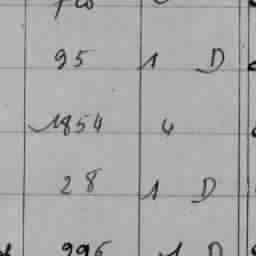 95 1 D
1854 4
28 1 D
996 1 D